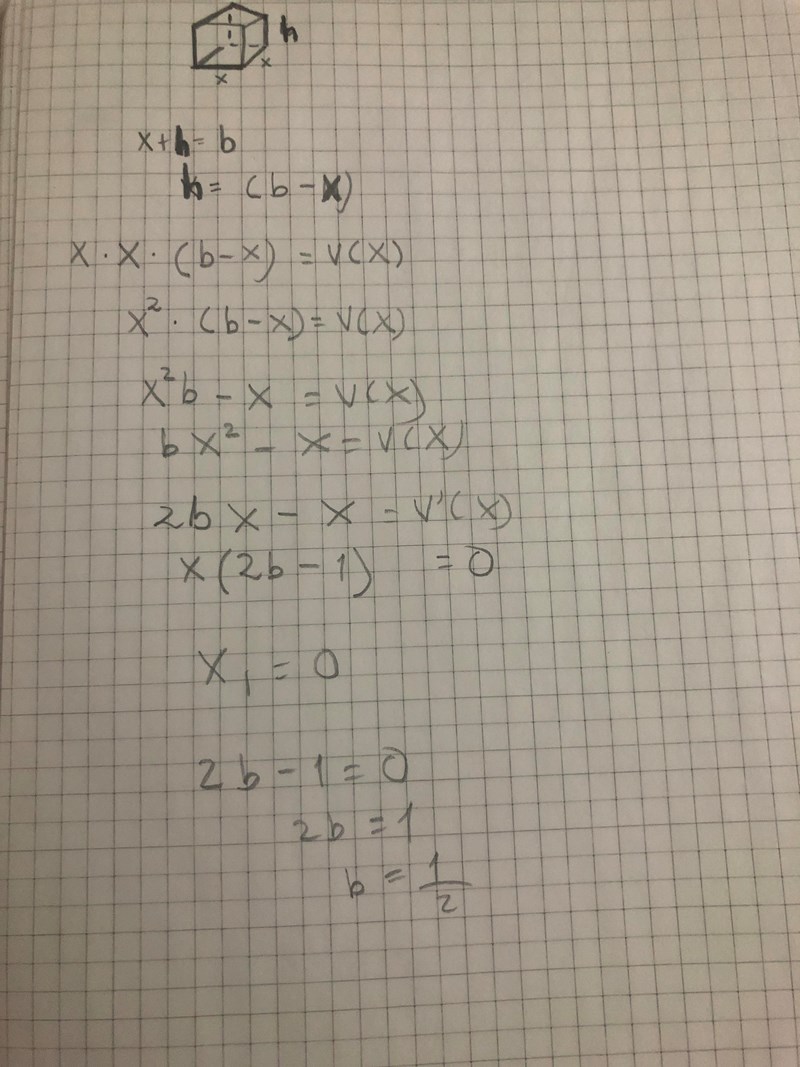 h
x
x
x+h=b
h= (b-x)
X·X·(b-x) =V(X)
x²·(b-x)=V(X)
x²b - x =V(X)
bx² - x=V(X)
2bx - x =V'(X)
x(2b-1) =0
X₁ = 0
2b-1=0
2b=1
b = 1/2